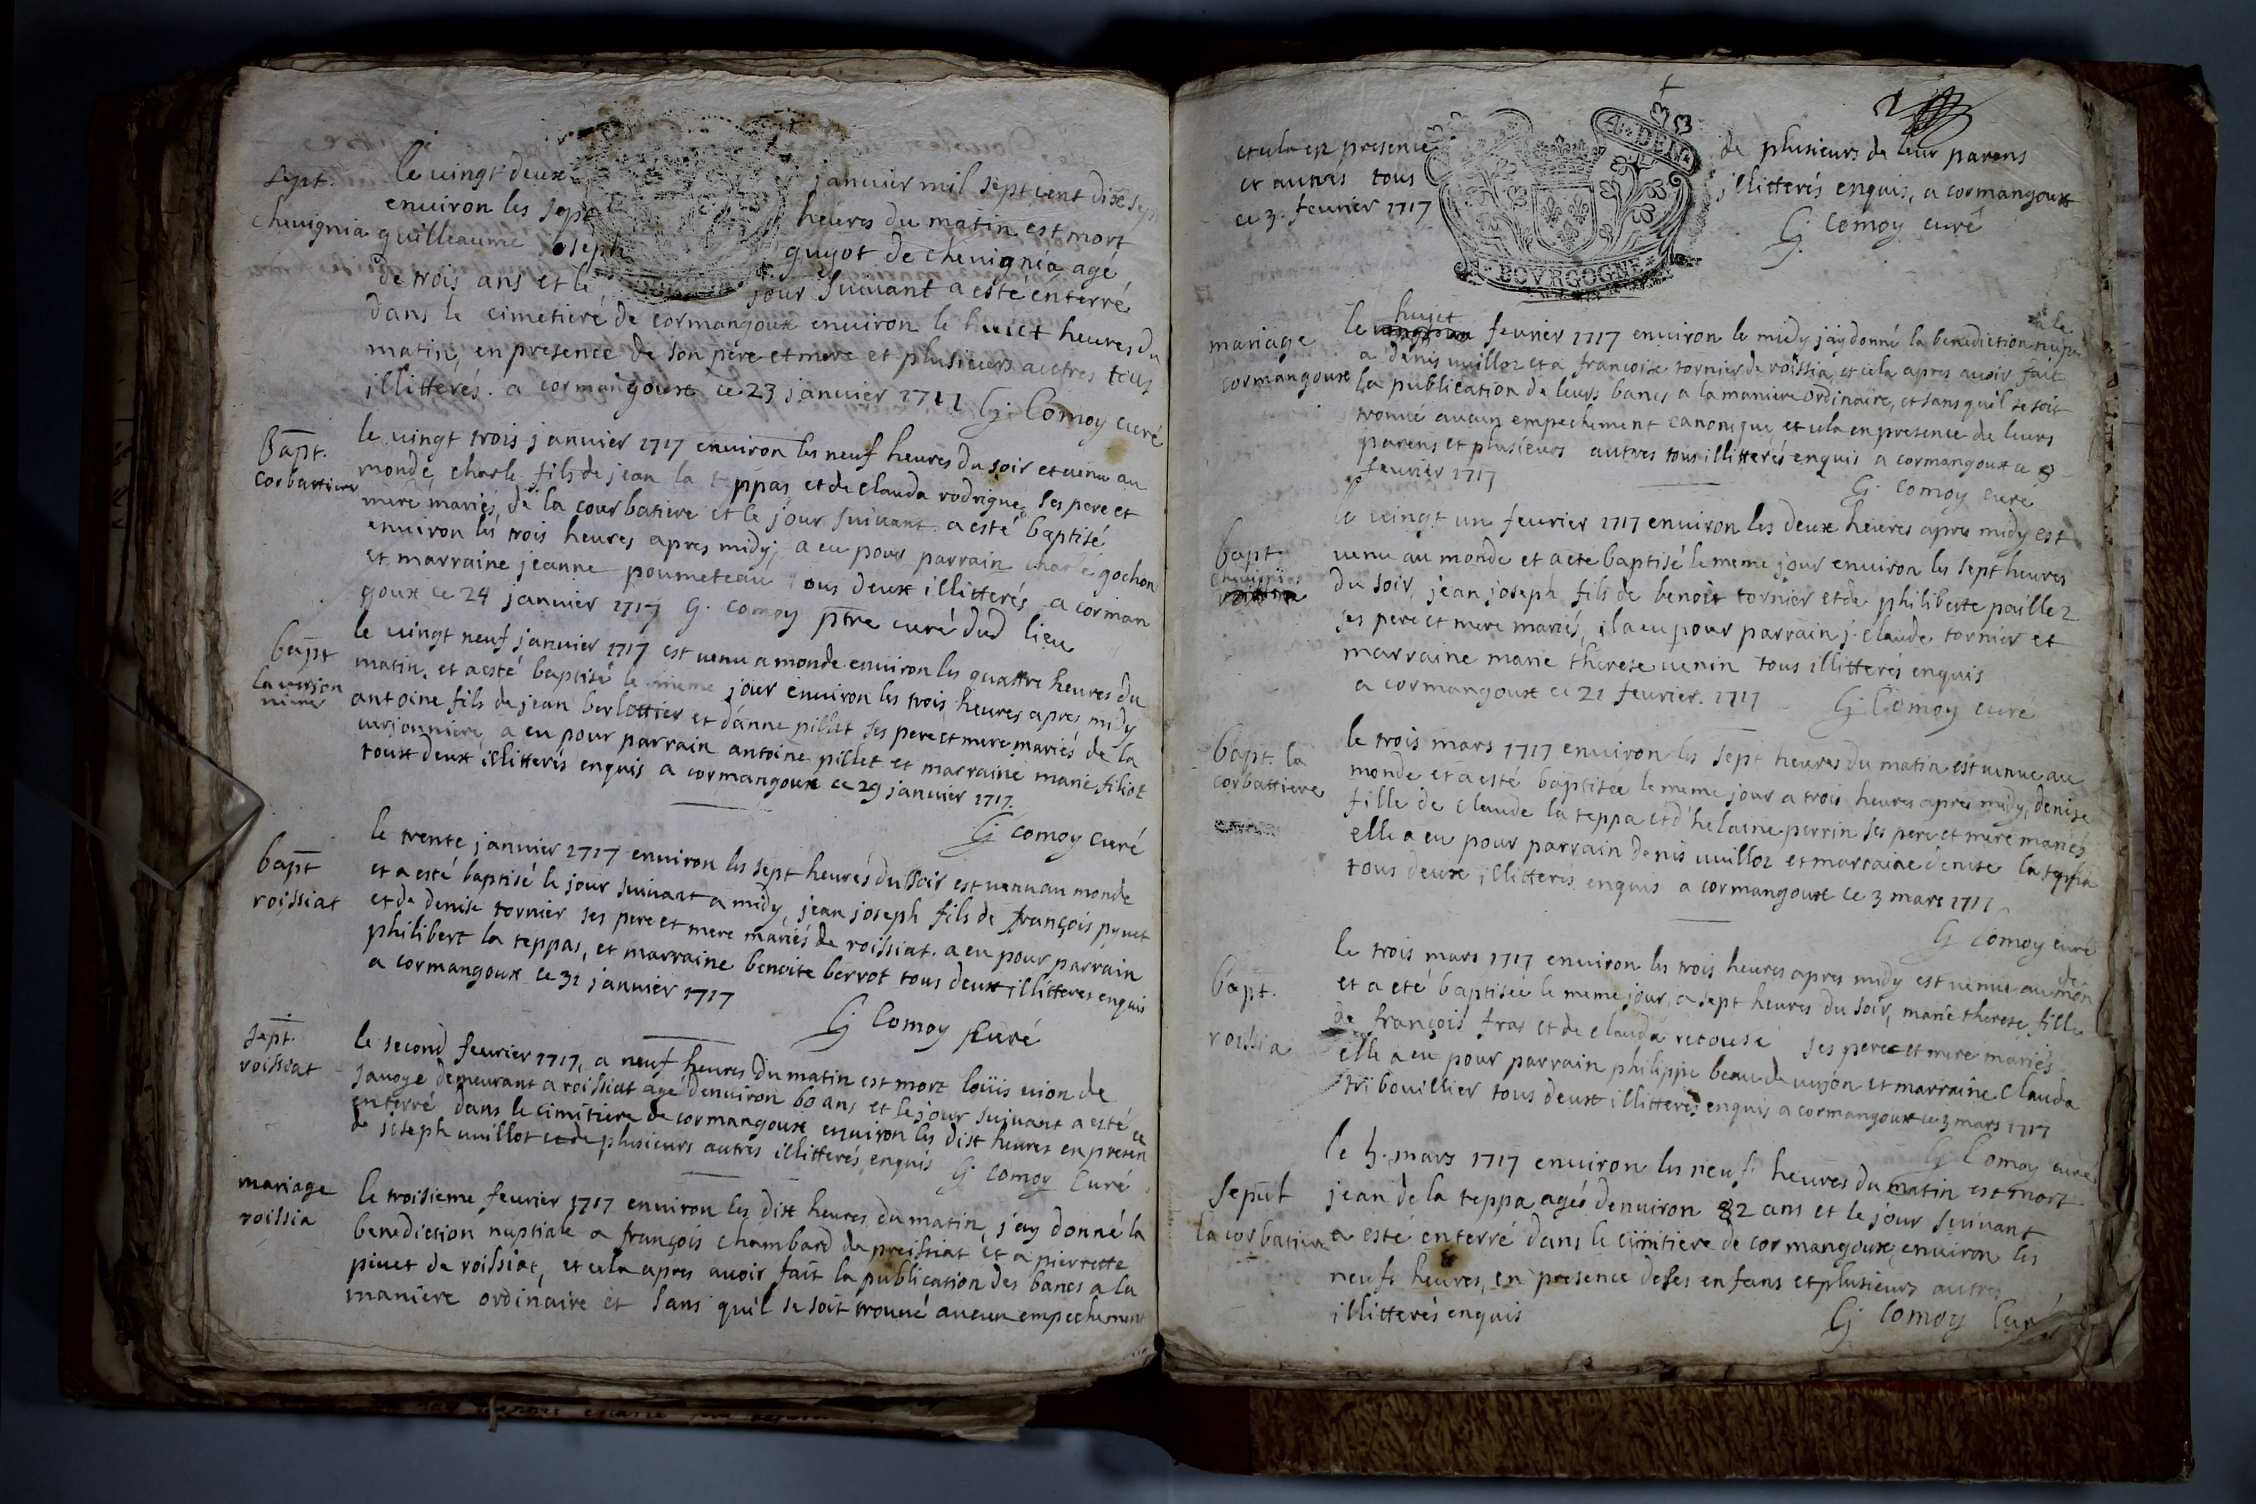 sept.
chevignia
le vingt deux janvier mil sept cent dixe sept
environ les sept heures du matin est mort
guilleaume joseph guyot de chevignia agé
de trois ans et le jour suivant a esté enterré
dans le cimetiere de cormangoux environ le huict heures du
matin, en presence de son pére et mere et plusieurs autres tous
illitterés. a cormangoux ce 23 janvier 1717 G. Comoy curé
bapt.
corbartiere
le vingt trois janvier 1717 environ les neuf heures du soir et venu au
monde, charle fils de jean la teppas et de clauda rodrigue ses pere et
mere mariés, de la courbatiere et le jour suivant a esté baptisé
environ les trois heures apres midy; a eu pour parrain charle gochon
et marraine jeanne poumeteau tous deux illitterés a corman
goux ce 24 janvier 1717 G. comoy ptre curé dud lieu
bapt
la verjon
niere
le vingt neuf janvier 1717 est venu a monde environ les quattre heures du
matin, et a esté baptisé le meme jour environ les trois heures apres midy
antoine fils de jean berlottier et d'anne pillet ses pere et mere mariés de la
verjonniere, a eu pour parrain antoine pillet et marraine marie filiot
toux deux illitterés enquis a cormangoux ce 29 janvier 1717.
G comoy curé
bapt
roissiat
le trente janvier 1717 environ les sept heures du soir est venu au monde
et a esté baptisé le jour suivant a midy, jean joseph fils de françois pyvet
et de denise tornier ses pere et mere mariés de roissiat. a eu pour parrain
philibert la teppas, et marraine benoite berrot tous deux illitteres enquis
a cormangoux ce 31 janvier 1717
G Comoy Curé
sept.
roissiat
le second fevrier 1717, a neuf heures du matin est mort loüis vion de
savoye demeurant a roissiat agé denviron 60 ans et le jour suivant a esté
enterré dans le cimitiere de cormangoux environ les dixt heures en presen ce
de joseph vuillot et de plusieurs autres illitterés, enquis G. comoy Curé
mariage
roissia
le troisieme fevrier 1717 environ les dixt heures du matin, j'ay donné la
benediction nuptiale a françois chambard de preissiat et a pierrette
pivet de roissiat, et cela apres avoir fait la publication des bancs a la
maniere ordinaire et sans qu'il se soit trouvé aucun empechement
et cela en presence de plusieurs de leur parens
et autres tous illitterés enquis, a cormangoux
ce 3. fevrier 1717
G. Comoy curé
DEN
BOVRGOGNE
mariage
cormangoux
huict
le fevrier 1717 environ le midy j'ay donné la benediction nuptiale
a denis vuilloz et a francoise tornier de roissia, et cela apres avoir fait
la publication de leurs bancs a la maniere ordinaire, et sans qu'il se soit
trouvé aucun empechement canonique, et cela en presence de leurs
parens et plusieurs autres tous illitterés enquis a cormangoux ce 8
fevrier 1717
G. Comoy cure
bapt.
le vingt un fevrier 1717 environ les deux heures apres midy est
venu au monde et a ete baptisé le meme jour environ les sept heures
du soir, jean joseph fils de benoit tornier et de philiberte paillez
ses pere et mere mariés, il a eu pour parrain j. claude tornier et
marraine marie therese venin tous illitterés enquis
a cormangoux ce 21 fevrier. 1717
G. Comoy curé
bapt. la
corbattiere
le trois mars 1717 environ les sept heures du matin est venue au
monde et a esté baptisée le meme jour a trois heures apres midy, denise
fille de claude la teppa et d'helaine perrin ses pere et mere mariés
elle a eu pour parrain denis vuilloz et marraine denise la teppa
tous deux illitterés enquis a cormangoux ce 3 mars 1717
G Comoy curé
bapt.
roissia
le trois mars 1717 environ les trois heures apres midy est venue au mon de
et a eté baptisée le meme jour, a sept heures du soir, marie therese, fille
de françois fras et de clauda retouse ses pere et mere mariés
elle a eu pour parrain philippe beau de vujon et marraine Clauda
tribouillier tous deux illitterés enquis a cormangoux ce 3 mars 1717
G Comoy curé
sepult
la corbatiere
le 5. mars 1717 environ les neuf heures du matin est mort
jean de la teppa, agés denviron 82 ans et le jour suivant
a esté enterré dans le cimitiere de cormangoux, environ les
neufs heures, en presence de ses enfans et plusieurs autres
illitterés enquis
G Comoy Curé